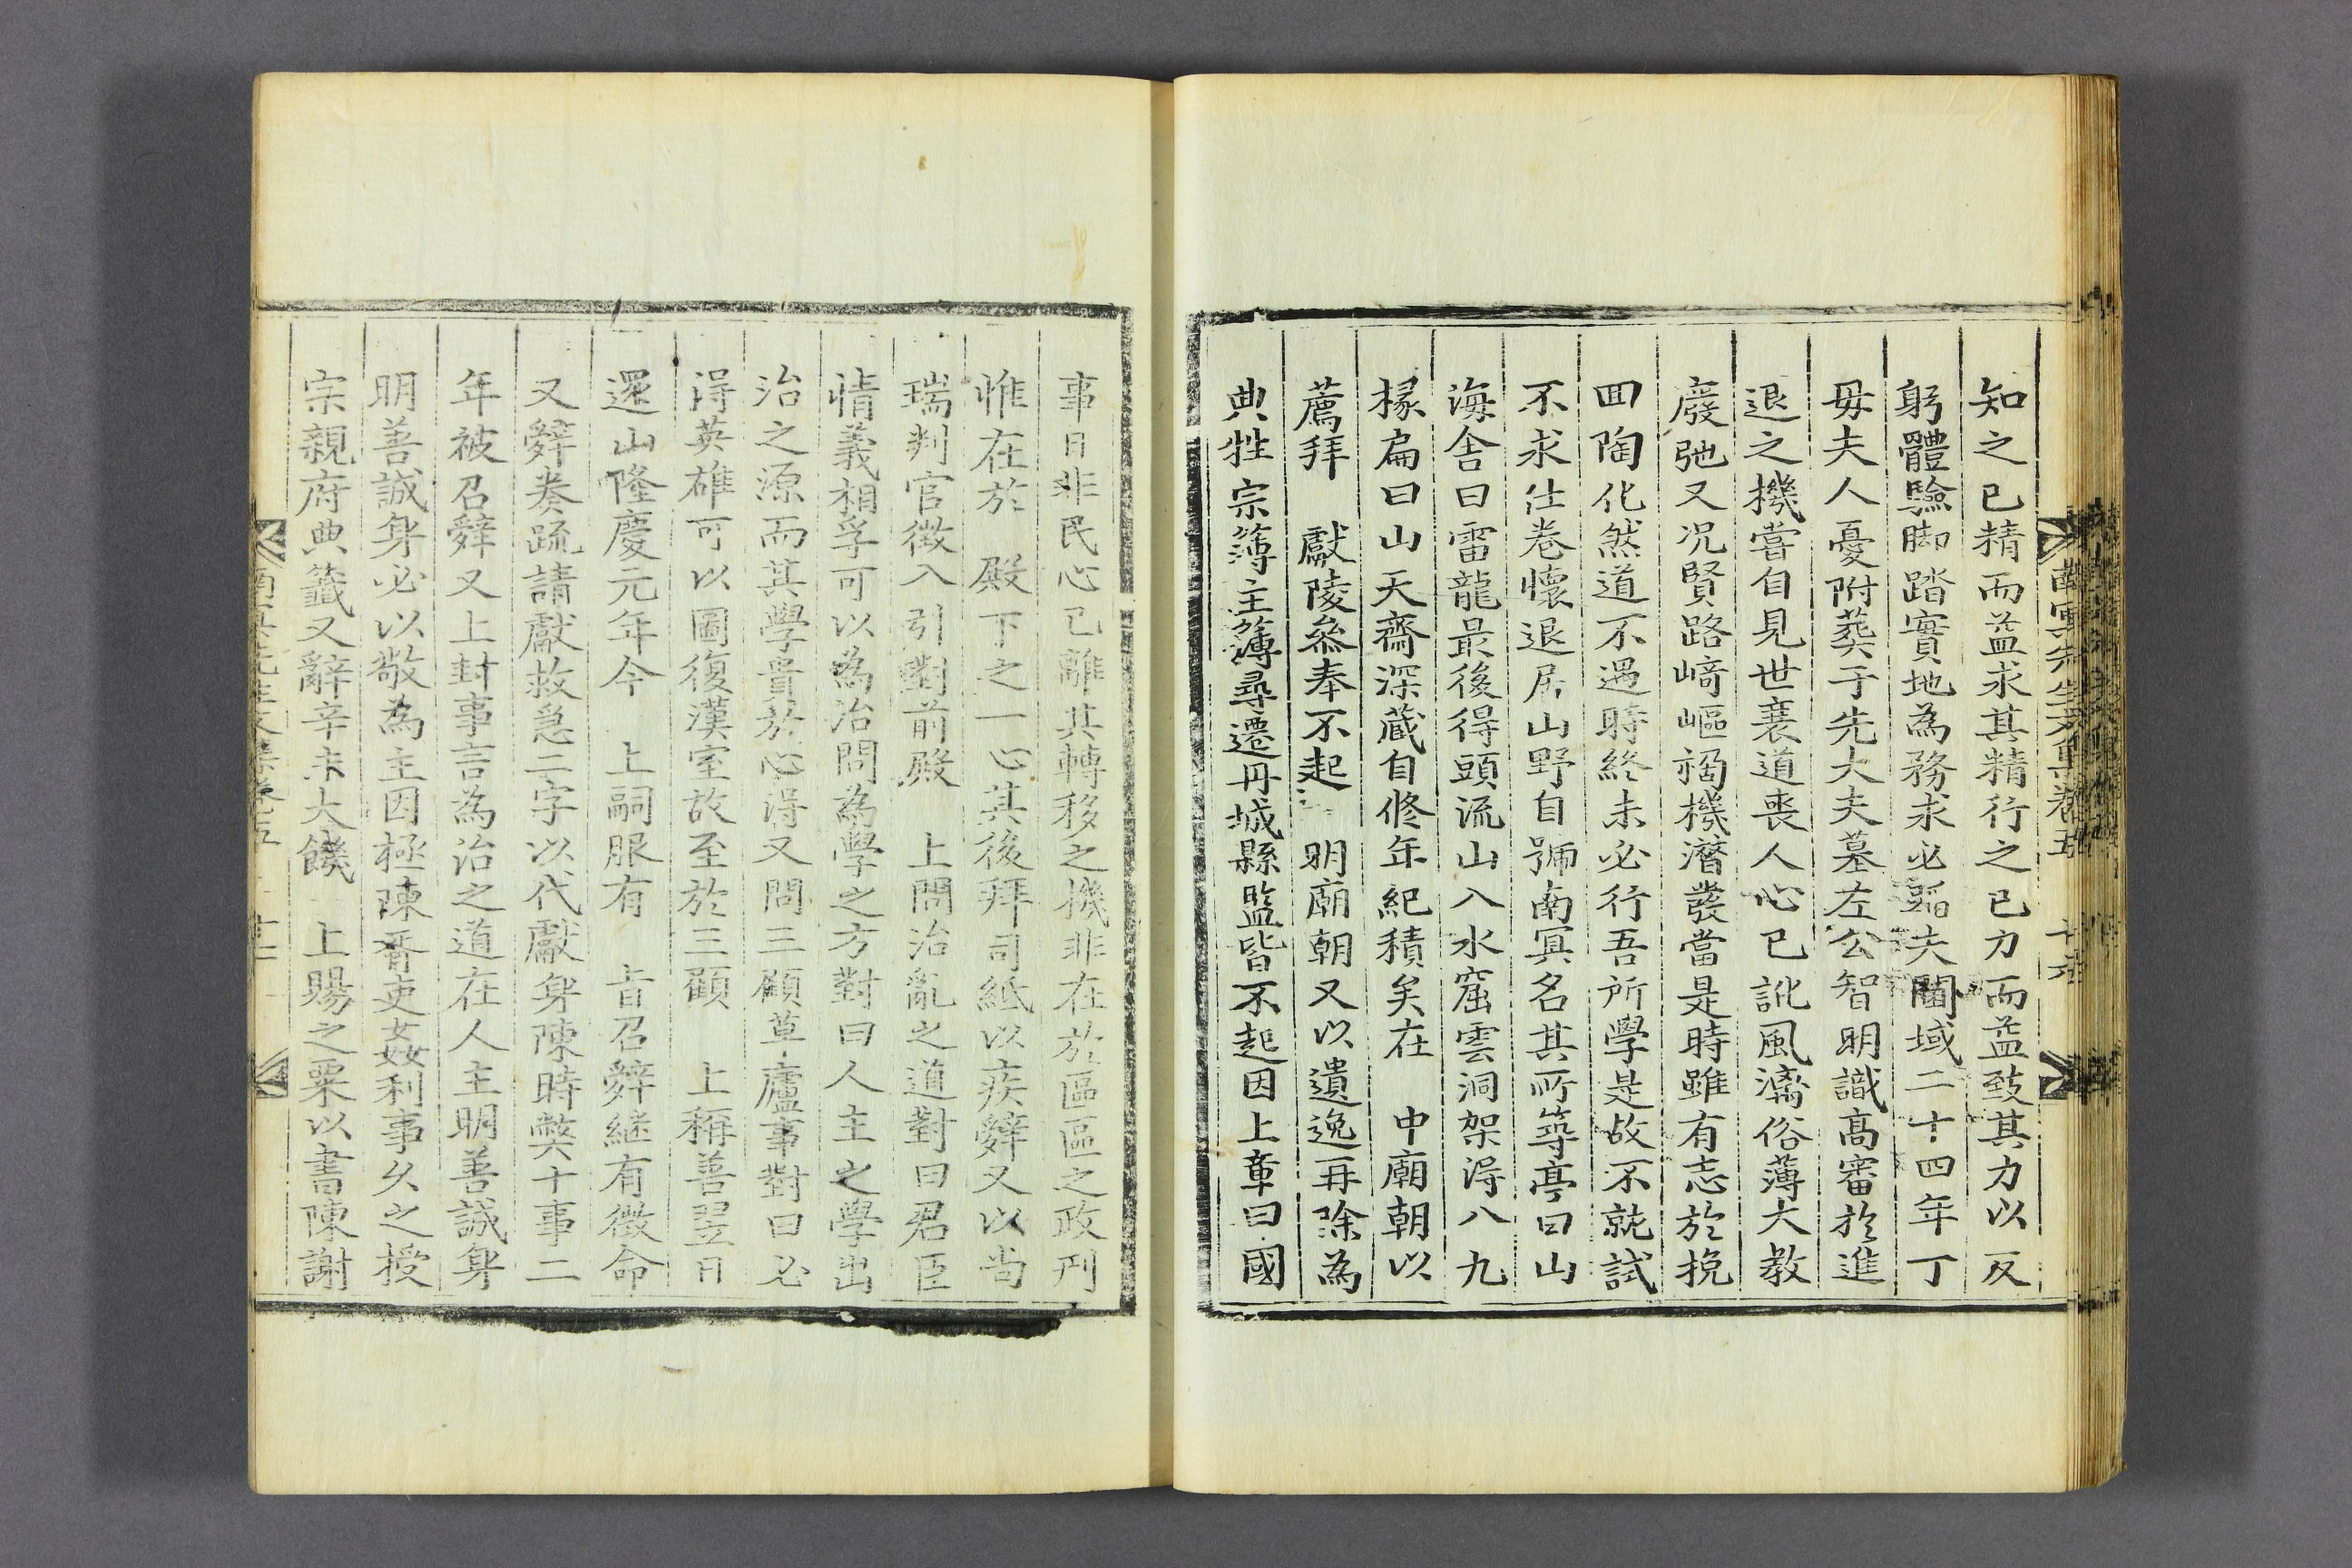 知之已精而益求其精行之已力而益致其力以反
躬體驗脚踏實地為務求必蹈夫閫域二十四年丁
毋夫人憂附葬于先大夫墓左公智明識高審於進
退之機嘗自見世衰道喪人心已訛風漓俗薄大教
廢弛又况賢路崎嶇禍機潛發當是時雖有志於挽
回陶化然道不遇時終未必行吾所學是故不就試
不求仕卷懷退居山野自號南冥名其所築亭曰山
海舍曰雷龍最後得頭流山入水窟雲洞架得八九
椽扁曰山天齋深藏自修年紀積矣在　中廟朝以
薦拜　獻陵叅奉不起　明廟朝又以遺逸再除為
典牲宗簿主簿尋遷丹城縣監皆不起因上章曰國
事日非民心已離其轉移之機非在於區區之政刑
惟在於　殿下之一心其後拜司紙以疾辭又以尚
瑞判官徴入引對前殿　上問治亂之道對曰君臣
情義相孚可以為治問為學之方對曰人主之學出
治之源而其學貴於心得又問三顧草廬事對曰必
得英雄可以圖復漢室故至於三顧　上稱善翌日
還山隆慶元年今　上嗣服有　旨召辭継有徴命
又辭奏疏請獻救急二字以代獻身陳時弊十事二
年被召辭又上封事言為治之道在人主明善誠身
明善誠身必以敬為主因極陳胥吏姦利事久之授
宗親府典籤又辭辛未大饑　上賜之粟以書陳謝
南冥先生文集卷五